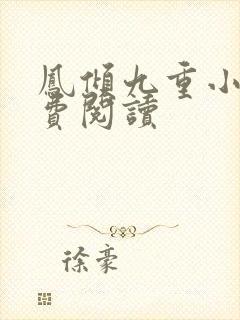 鳳傾九重小
費閱讀
徐豪